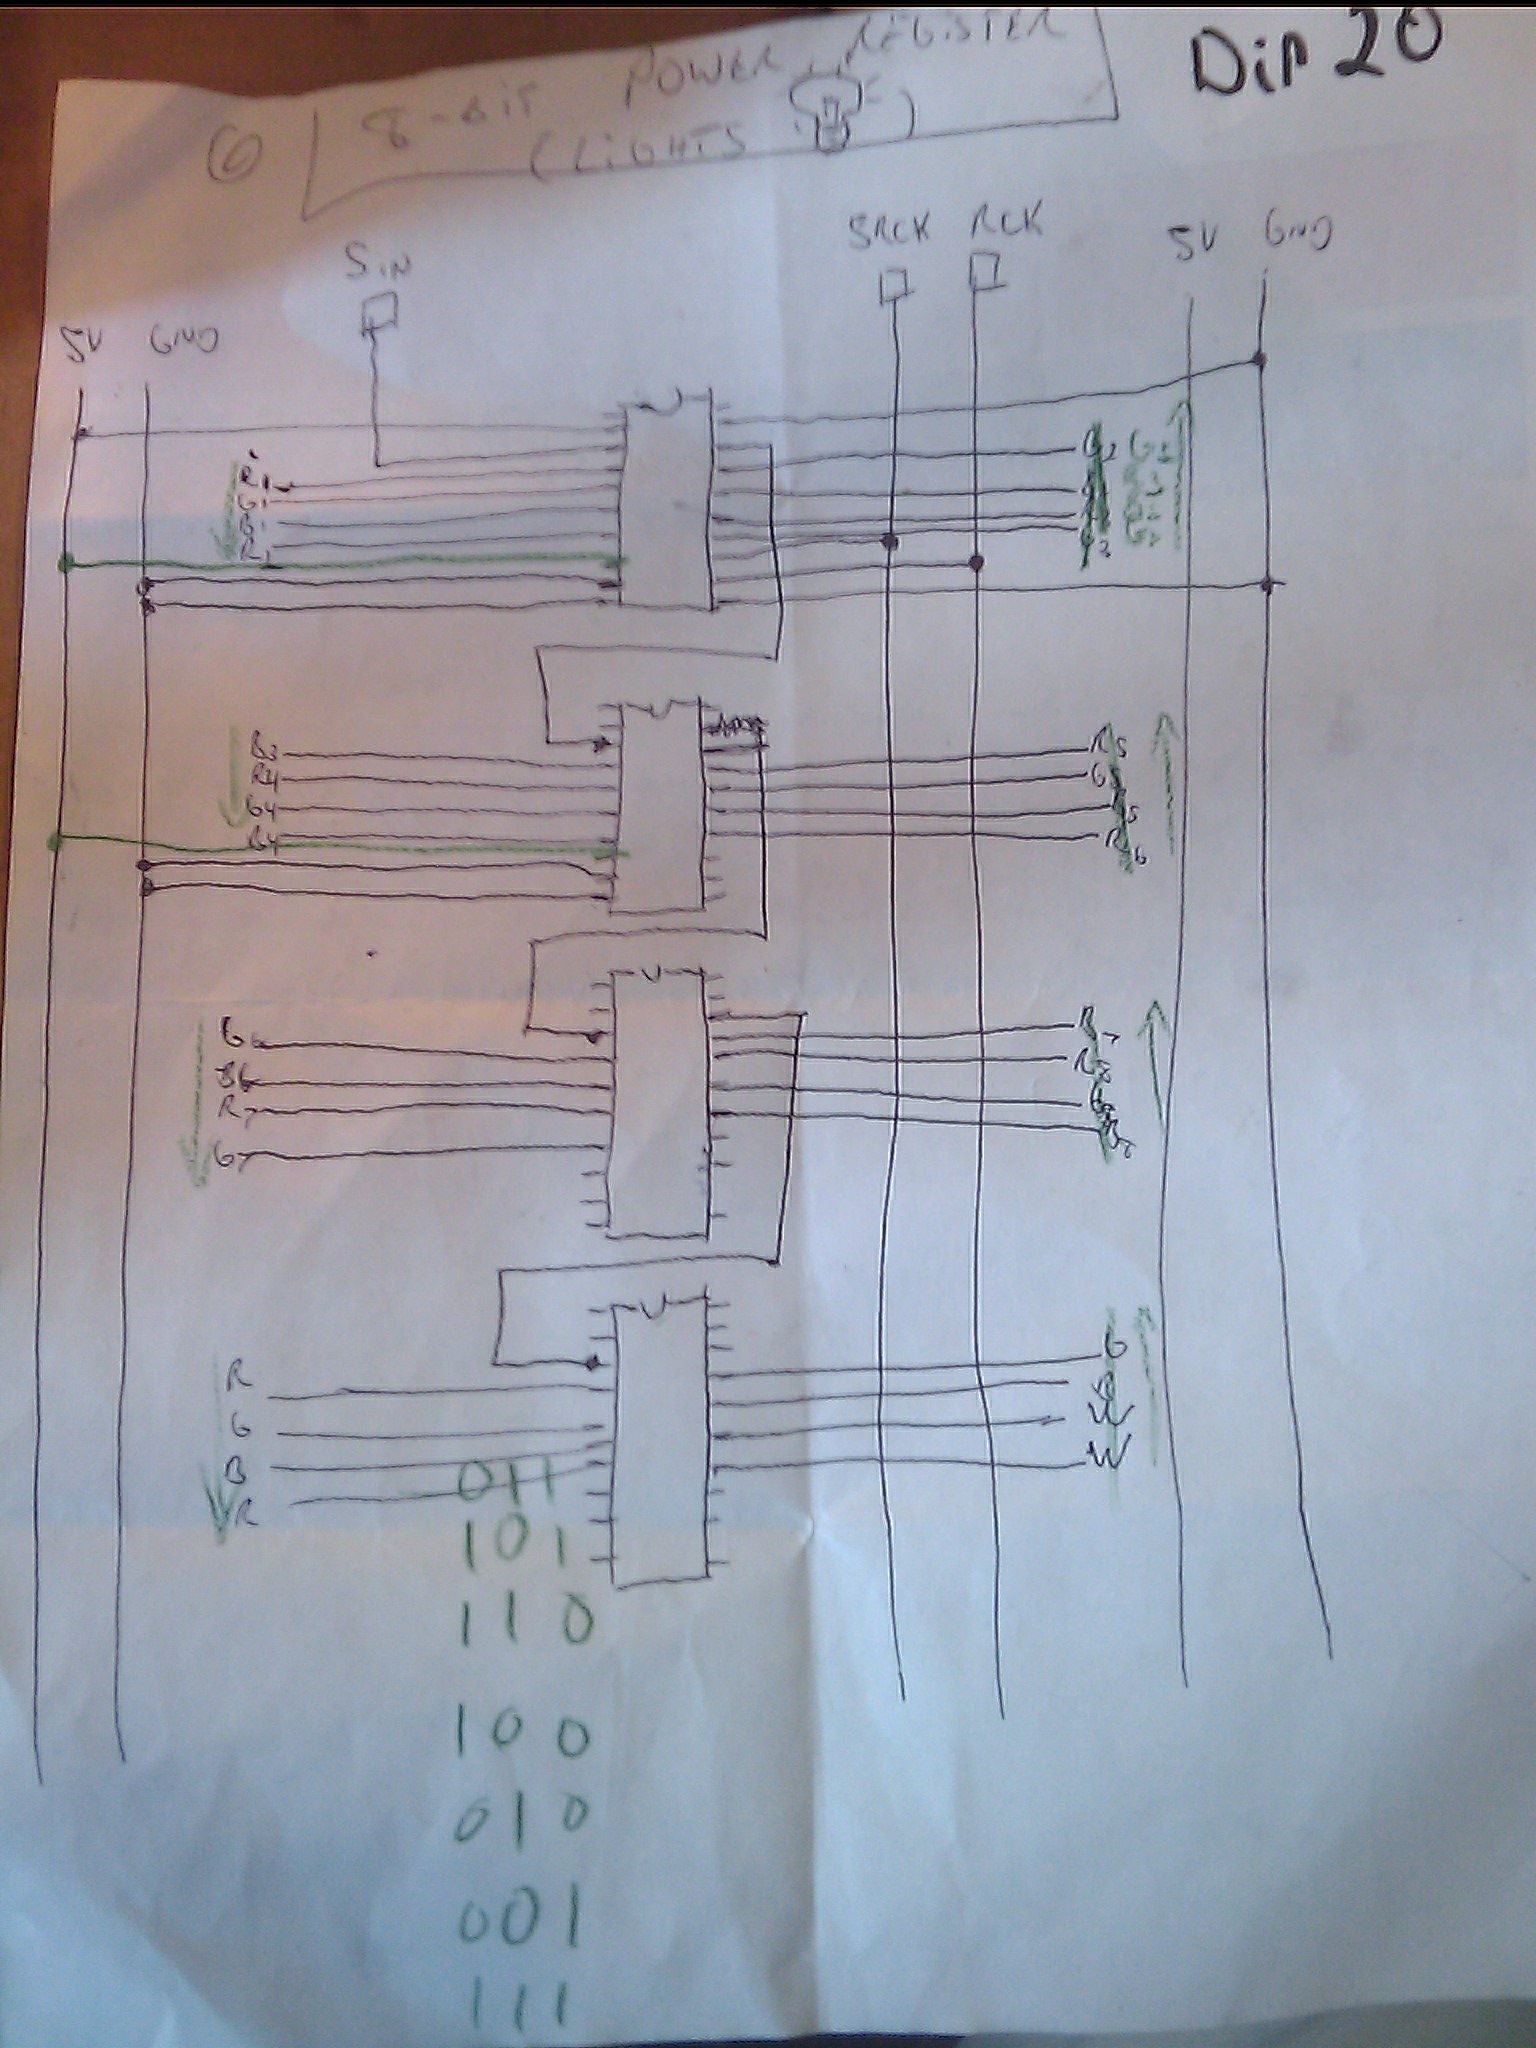 DIP 20
6
8-BIT POWER REGISTER
(LIGHTS)
SIN
SRCK RCK
5V GND
5V GND
R1
G1
B1
R2
B3
R4
G4
B4
R5
G
5
R6
G6
B6
R7
G7
B7
R8
R
G
B
R
G
W
W
011
101
110
100
010
001
111